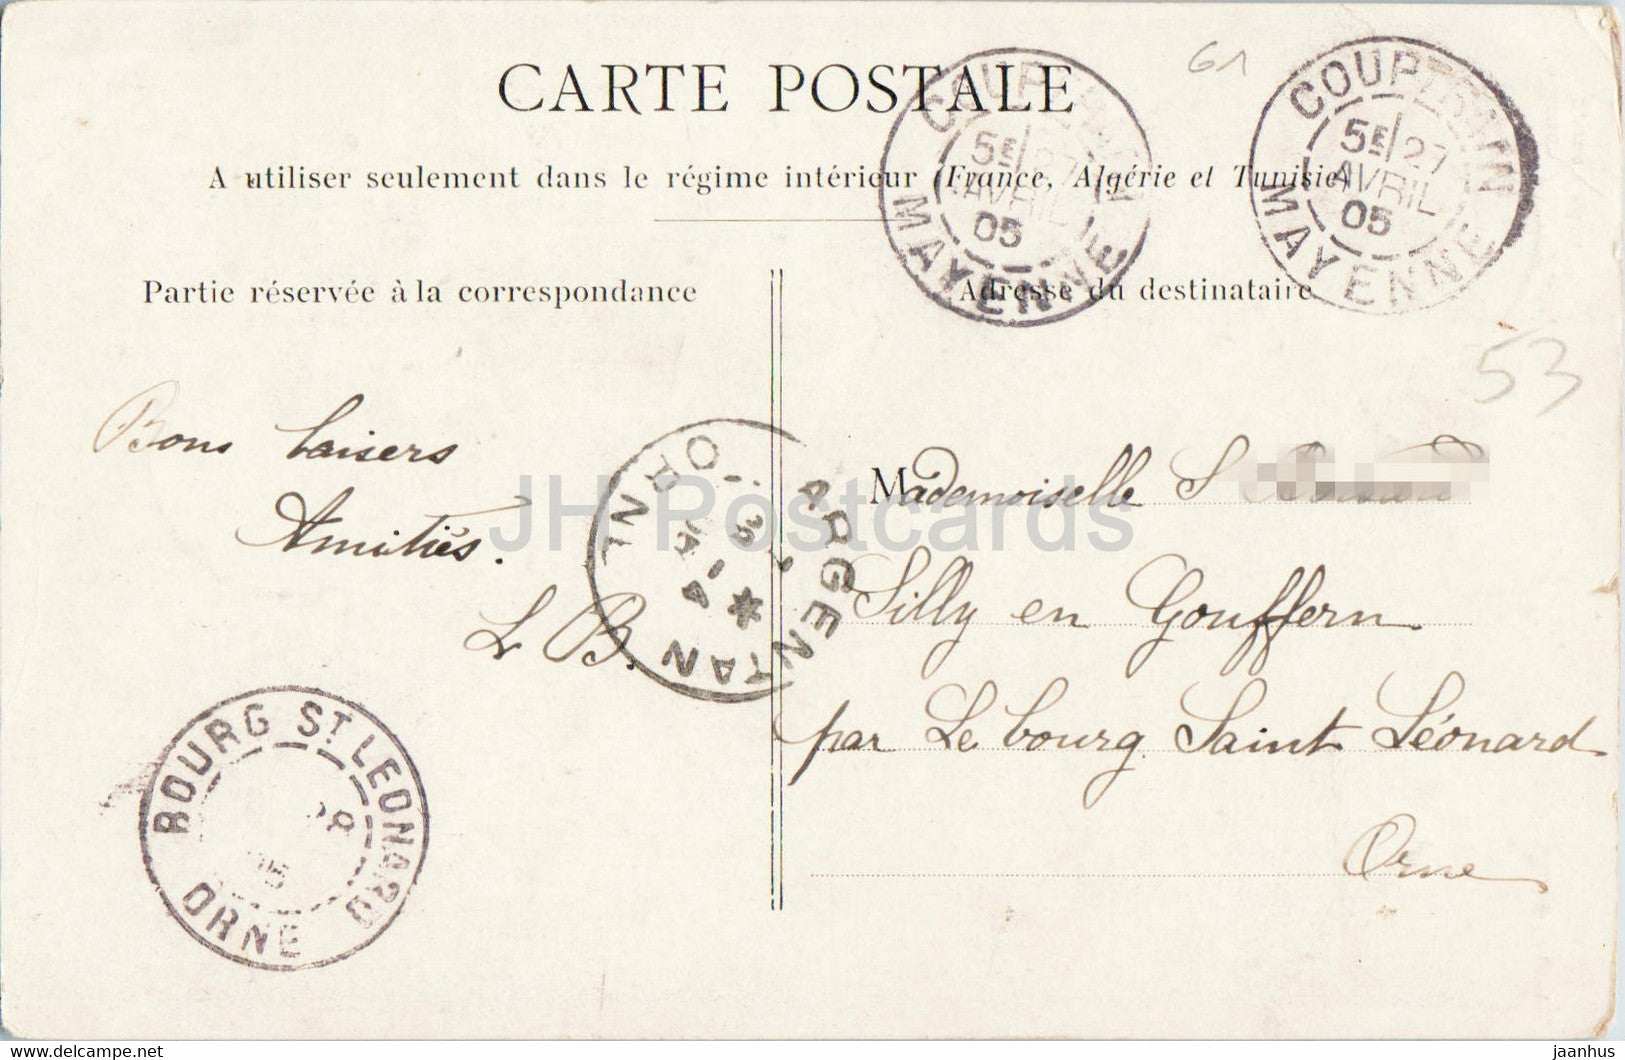 61
CARTE POSTALE
A utiliser seulement dans le régime intérieur (France, Algérie et Tunisie)
COUPTRAIN
5E 27
AVRIL
05
MAYENNE
COUPTRAIN
5E 27
AVRIL
05
MAYENNE
Partie réservée à la correspondance
Adresse du destinataire
53
Bons baisers
Amitiés.
L B.
ARGENTAN
ORNE
JH Postcards
Mademoiselle S
Silly en Gouffern
par Le bourg Saint Léonard
Orne
BOURG ST LEONARD
28
05
ORNE
www.delcampe.net
jaanhus